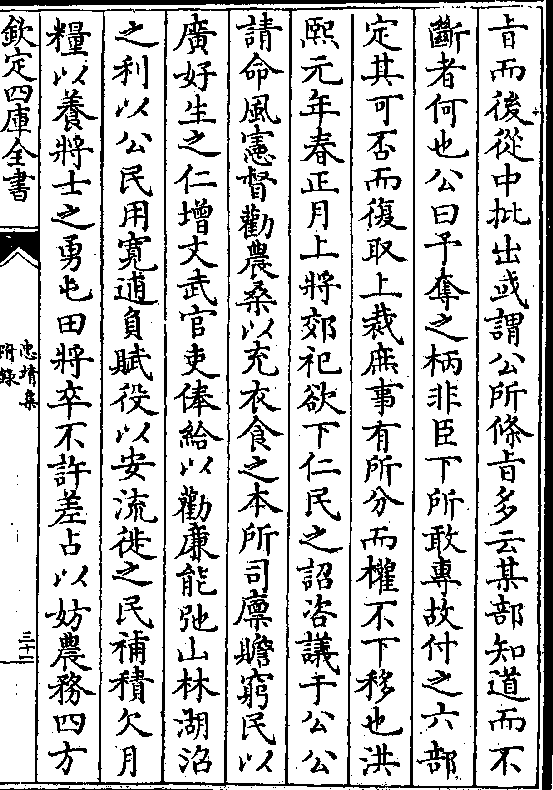 旨而後從中批出或謂公所條旨多云某部知道而不
斷者何也公曰予奪之柄非臣下所敢專故付之六部
定其可否而復取上裁庶事有所分而權不下移也洪
熙元年春正月上將郊祀欲下仁民之詔咨議于公公
請命風憲督勸農桑以充衣食之本所司廪贍窮民以
廣好生之仁增文武官吏俸給以勸廉能弛山林湖沼
之利以公民用寛逋負賦役以安流徙之民補積欠月
糧以養將士之勇屯田將卒不許差占以妨農務四方
欽定四庫全書
忠靖集
附録
三十一